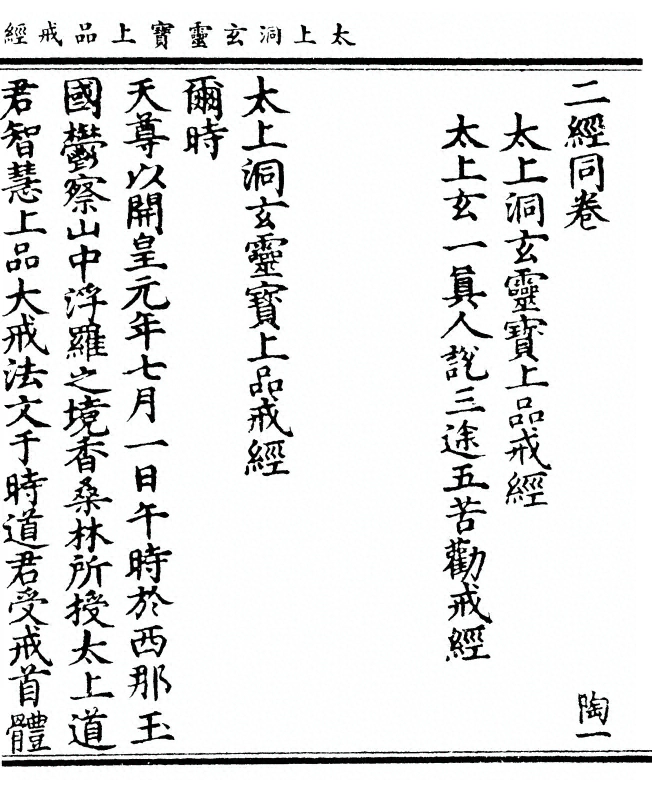 太上洞玄靈寶上品戒經
二經同卷
陶一
太上洞玄靈寶上品戒經
太上玄一真人說三途五苦勸戒經
太上洞玄靈寶上品戒經
爾時
天尊以開皇元年七月一日午時於西那玉
國鬱察山中浮羅之境香桑林所授太上道
君智慧上品大戒法文于時道君受戒首體